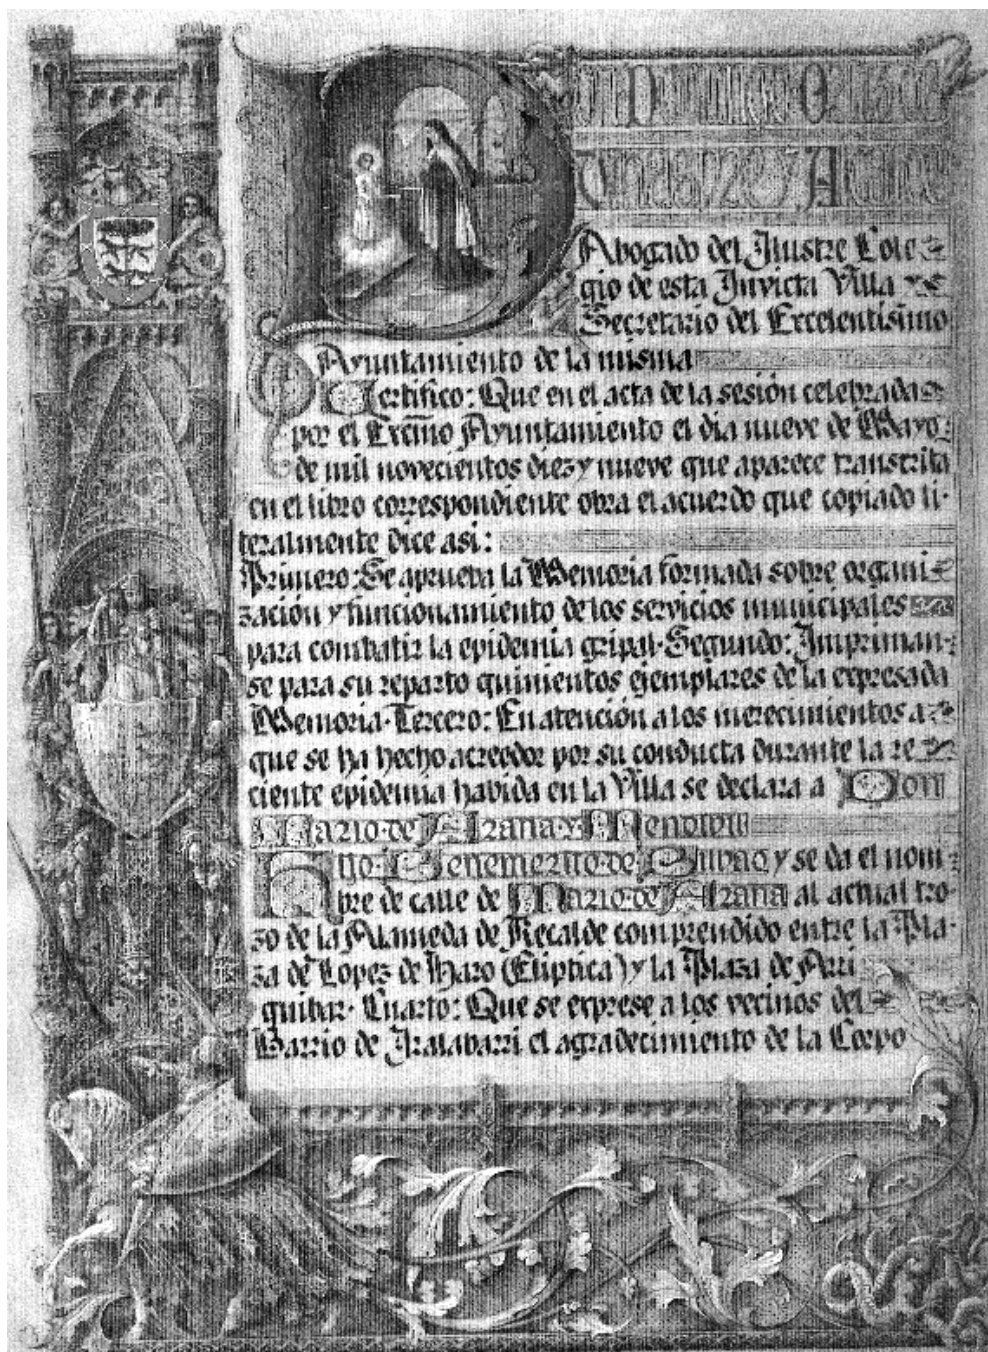 Don Domingo
Abogado del Ilustre Cole
gio de esta Invicta Villa
Secretario del Excelentísimo
Ayuntamiento de la misma
Certifico: Que en el acta de la sesión celebrada
por el Excmo Ayuntamiento el dia nueve de Mayo
de mil novecientos diez y nueve que aparece transcrita
en el libro correspondiente obra el acuerdo que copiado li-
teralmente dice asi:
Primero: Se aprueba la Memoria formada sobre organi
zación y funcionamiento de los servicios municipales
para combatir la epidemia gripal. Segundo: Impriman-
se para su reparto quinientos ejemplares de la expresada
Memoria. Tercero: En atención a los merecimientos a
que se ha hecho acreedor por su conducta durante la re
ciente epidemia habida en la Villa se declara a Don
Mario de Arana y Mendivil
Hijo Benemerito de Bilbao y se da el nom-
bre de calle de Mario de Arana al actual tro-
zo de la Alameda de Recalde comprendido entre la Pla-
za de Lopez de Haro (Eliptica) y la Plaza de Arri
quibar. Cuarto: Que se exprese a los vecinos del
Barrio de Iralabarri el agradecimiento de la Corpo